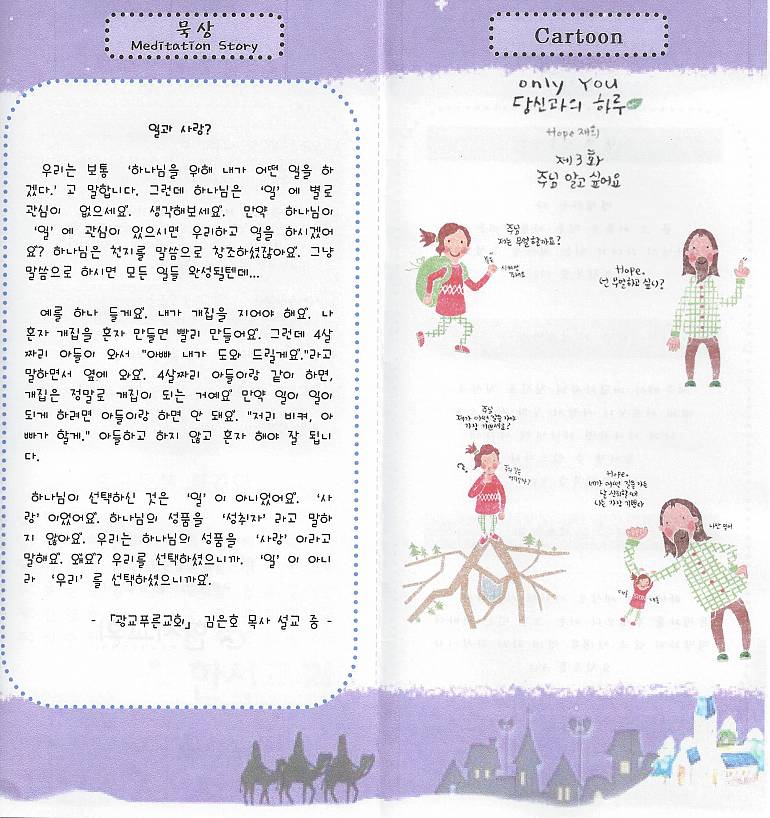 묵상
Meditation Story
일과 사랑?
우리는 보통 '하나님을 위해 내가 어떤 일을 하
겠다.' 고 말합니다. 그런데 하나님은 '일' 에 별로
관심이 없으세요. 생각해보세요. 만약 하나님이
'일' 에 관심이 있으시면 우리하고 일을 하시겠어
요? 하나님은 천지를 말씀으로 창조하셨잖아요. 그냥
말씀으로 하시면 모든 일들 완성될텐데...
예를 하나 들게요. 내가 개집을 지어야 해요. 나
혼자 개집을 혼자 만들면 빨리 만들어요. 그런데 4살
짜리 아들이 와서 "아빠 내가 도와 드릴게요."라고
말하면서 옆에 와요. 4살짜리 아들이랑 같이 하면,
개집은 정말로 개집이 되는 거예요 만약 일이 일이
되게 하려면 아들이랑 하면 안 돼요. "저리 비켜, 아
빠가 할게." 아들하고 하지 않고 혼자 해야 잘 됩니
다.
하나님이 선택하신 것은 '일' 이 아니었어요. '사
랑' 이었어요. 하나님의 성품을 '성취자' 라고 말하
지 않아요. 우리는 하나님의 성품을 '사랑' 이라고
말해요. 왜요? 우리를 선택하셨으니까. '일' 이 아니
라 '우리' 를 선택하셨으니까요.
- 「광교푸른교회」 김은호 목사 설교 중 -
Cartoon
only You
당신과의 하루
Hope 재희
제3화
주님 알고 싶어요
주님
저는 무얼 할까요?
Hope,
넌 무얼하고 싶니?
주님
제가 어떤 길을 가야
가장 기쁘세요?
Hope,
네가 어떤 길을 가든
날 신뢰할 때
나는 가장 기쁘다